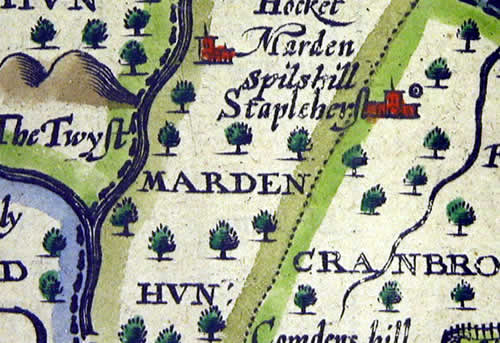 HVN
Hocket
Marden
Spilshill
Stapleherst
The Twyst
MARDEN
ly
D
CRANBRO
HVN:
Comdens hill